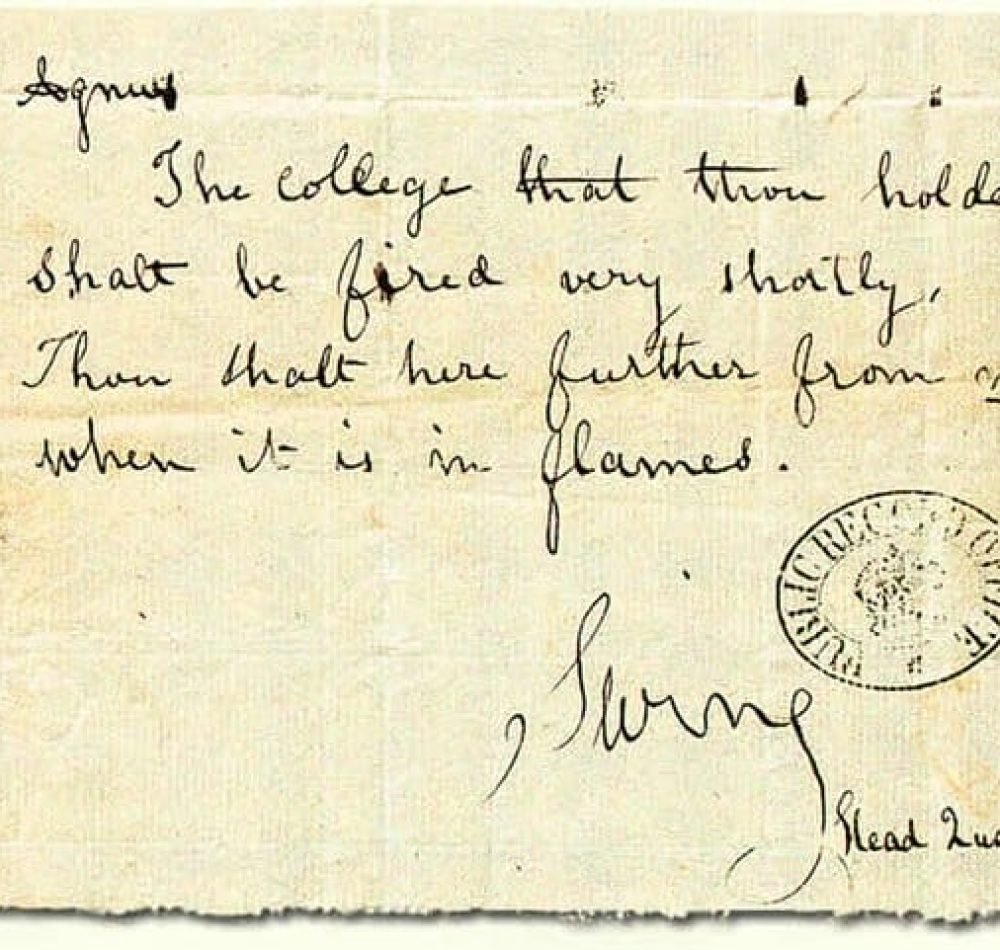 The college that thou holde
shalt be fired very shortly,
Thou shalt here further from
when it is in flames.
PUBLIC RECORD OFFICE
Swing
Head Qua